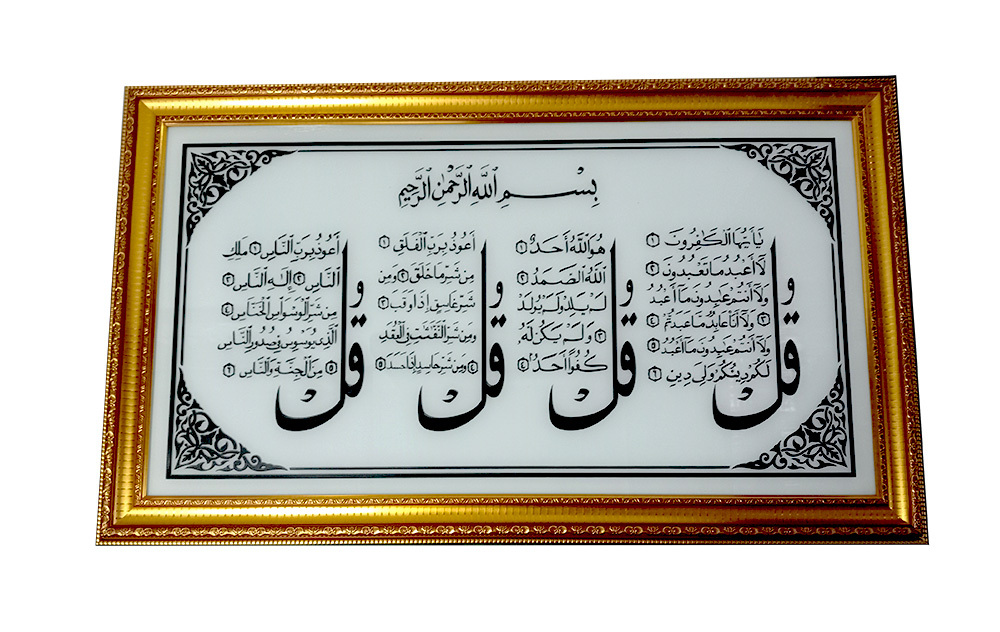 بِسْمِ اللَّهِ الرَّحْمَٰنِ الرَّحِيمِ
قُلْ
يَٰٓأَيُّهَا الْكَٰفِرُونَ ١
لَآ أَعْبُدُ مَا تَعْبُدُونَ ٢
وَلَآ أَنتُمْ عَٰبِدُونَ مَآ أَعْبُدُ
٣ وَلَآ أَنَا۠ عَابِدٌ مَّا عَبَدتُّمْ ٤
وَلَآ أَنتُمْ عَٰبِدُونَ مَآ أَعْبُدُ ٥
لَكُمْ دِينُكُمْ وَلِيَ دِينِ ٦
قُلْ
هُوَ اللَّهُ أَحَدٌ ١
اللَّهُ الصَّمَدُ ٢
لَمْ يَلِدْ وَلَمْ يُولَدْ
٣ وَلَمْ يَكُن لَّهُ
كُفُوًا أَحَدٌ ٤
قُلْ
أَعُوذُ بِرَبِّ الْفَلَقِ ١
مِن شَرِّ مَا خَلَقَ ٢ وَمِن
شَرِّ غَاسِقٍ إِذَا وَقَبَ ٣
وَمِن شَرِّ النَّفَّٰثَٰتِ فِي الْعُقَدِ
٤ وَمِن شَرِّ حَاسِدٍ إِذَا حَسَدَ ٥
قُلْ
أَعُوذُ بِرَبِّ النَّاسِ ١ مَلِكِ
النَّاسِ ٢ إِلَٰهِ النَّاسِ ٣
مِن شَرِّ الْوَسْوَاسِ الْخَنَّاسِ ٤
الَّذِي يُوَسْوِسُ فِي صُدُورِ النَّاسِ
٥ مِنَ الْجِنَّةِ وَالنَّاسِ ٦